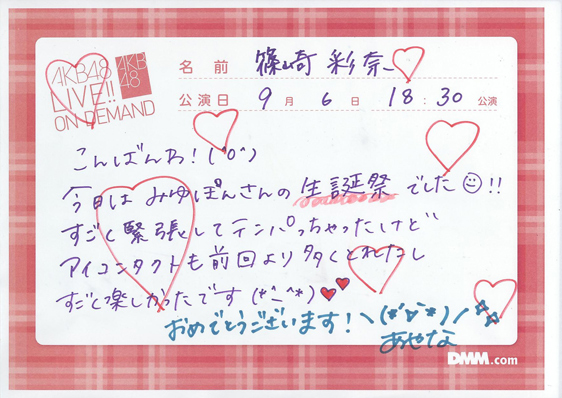 AKB48
LIVE!!
ON DEMAND
AKB
48
名前 篠崎 彩奈
公演日 9月 6日 18:30 公演
こんばんわ！(^o^)
今日は みゆぽんさんの 生誕祭 でした☺!!
すごく緊張してテンパっちゃったけど
アイコンタクトも前回より多くとれたし
すごく楽しかったです (*^_^*)♥♥
おめでとうございます！＼(*´∀`*)／☆☆
あやな
DMM.com